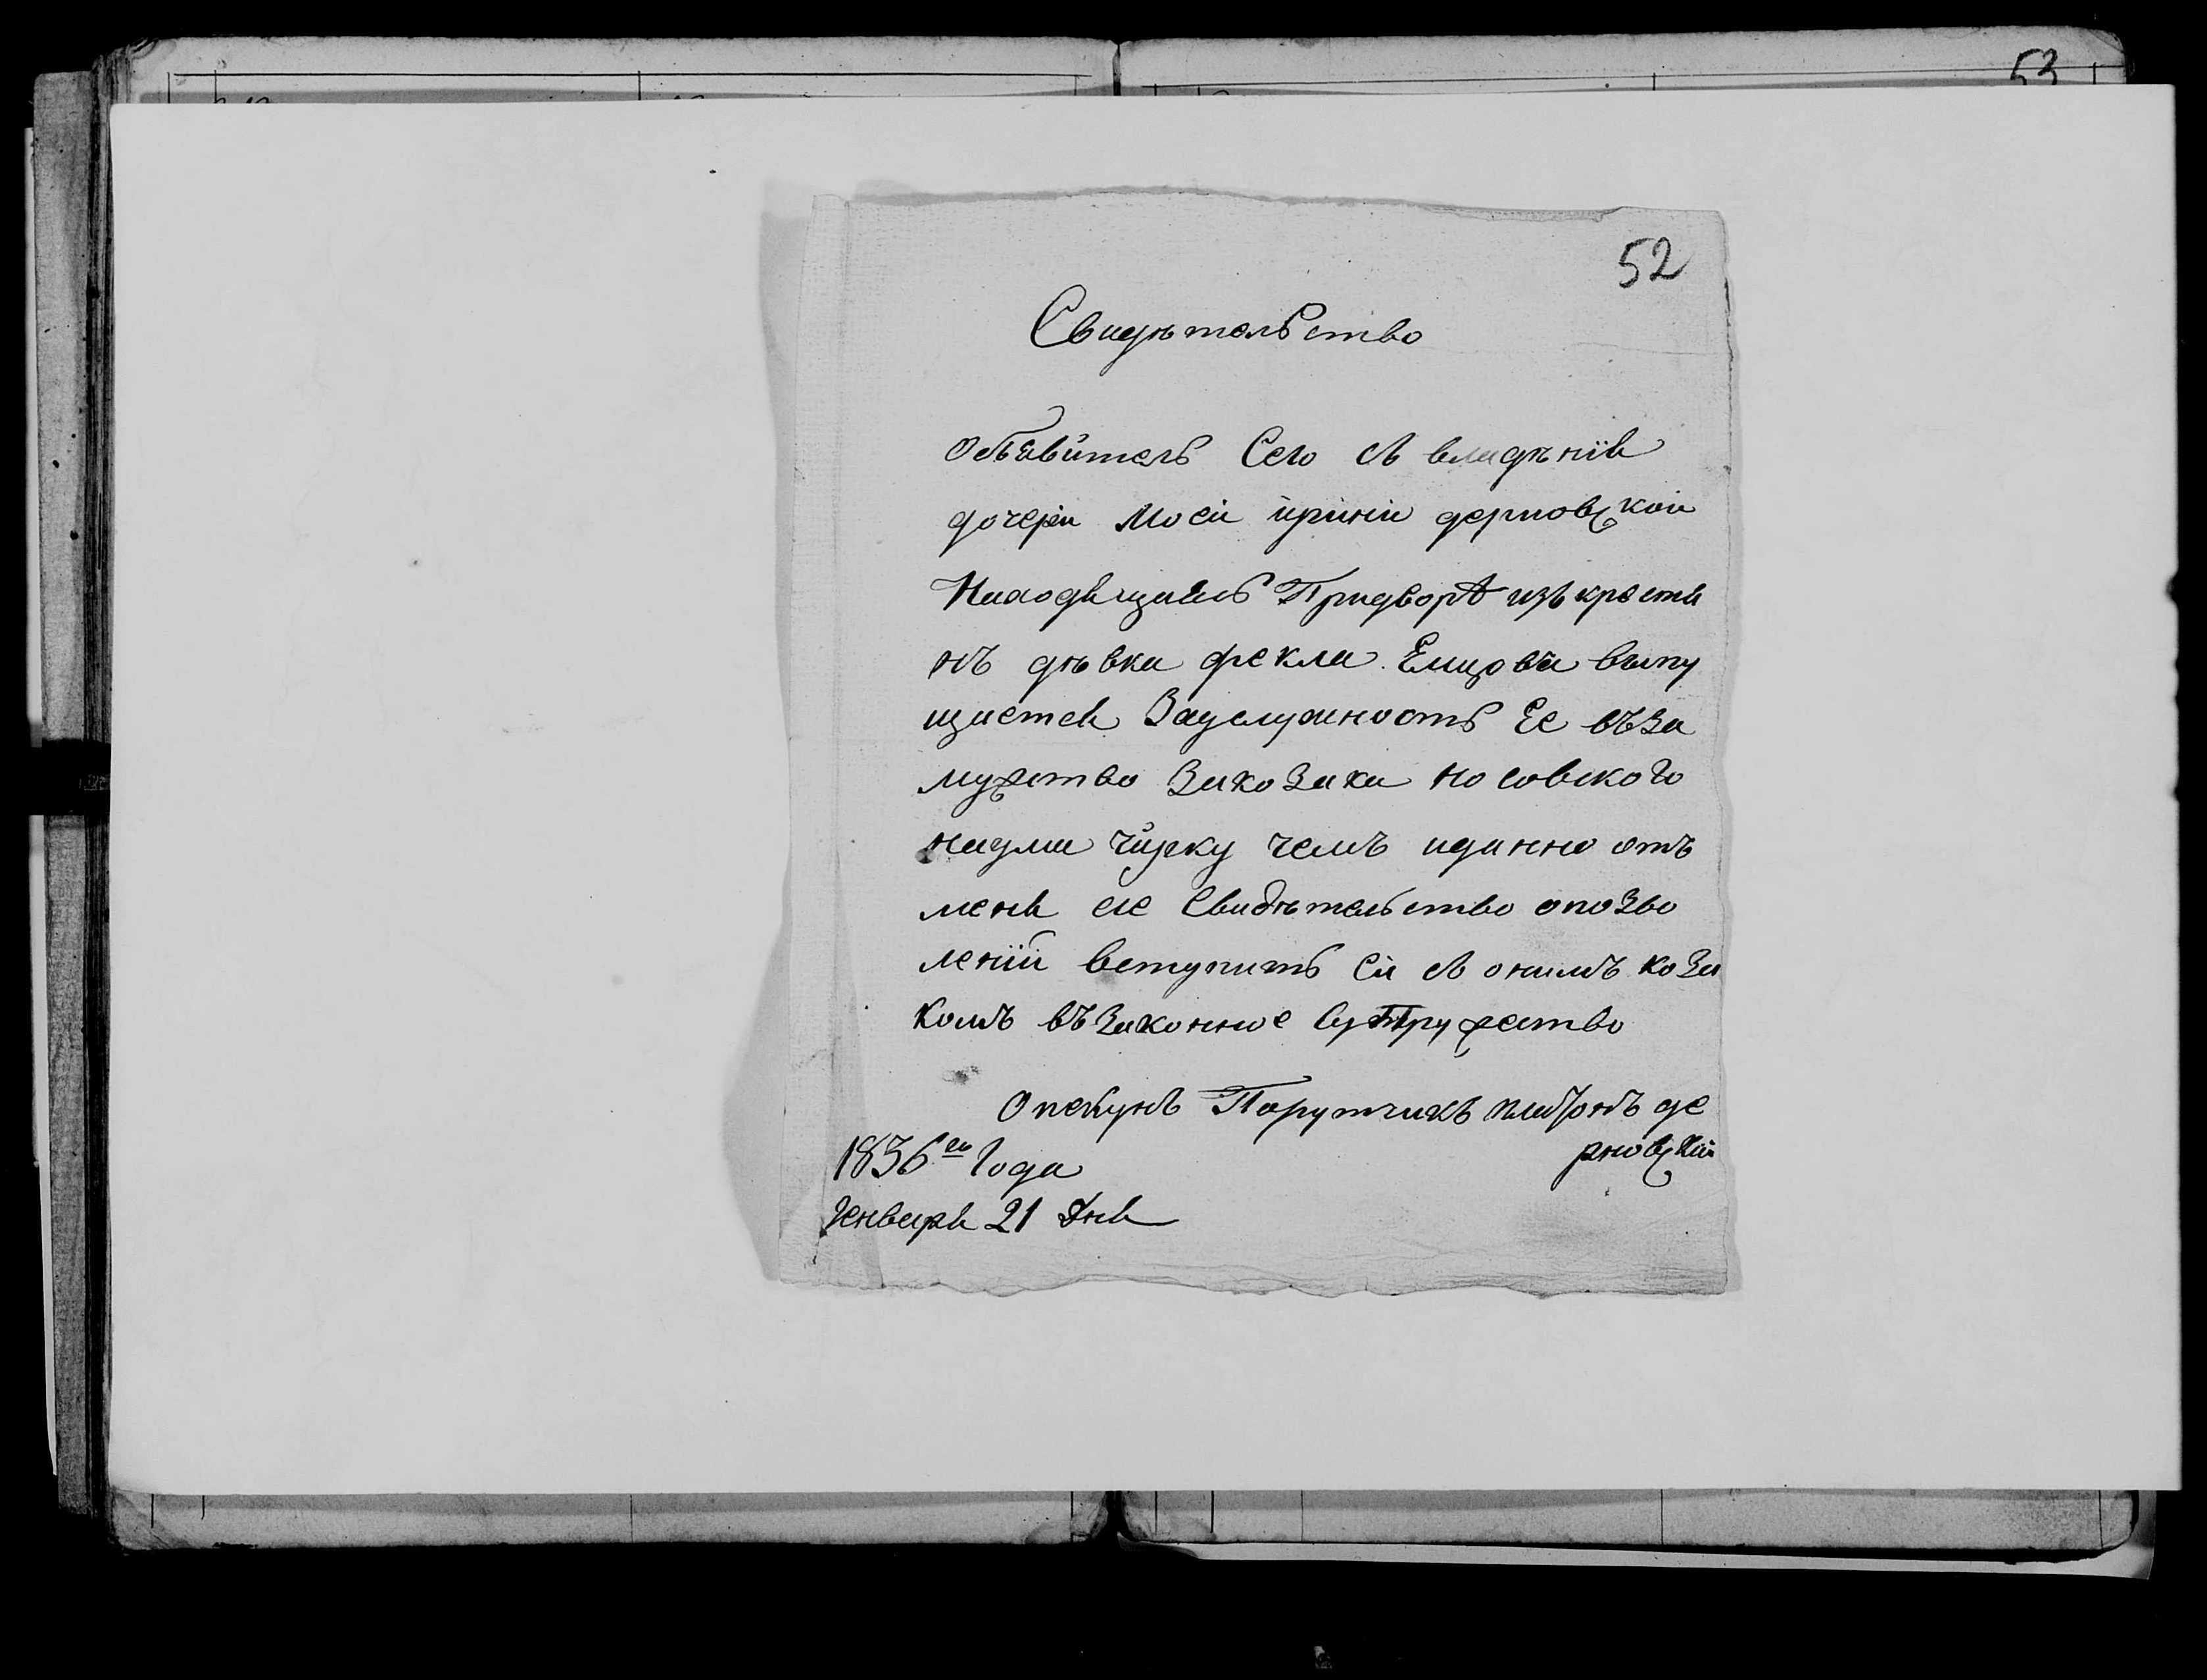 53
52
Свидѣтельство
Объявитель Сего съ владѣнія
дочери Моей ириніи дерновской
Находящаясь Придворѣ изъ крестя
нъ дѣвка фекла Емцова выпу
щается Зауслужность Ее въ за
мужство Закозака носовского
наума чирку чемъ и данно отъ
меня сие Свидѣтельство опозво
леніи вступить Ей съ онимъ коза
комъ въ Законное Супружество
Опекунъ Порутчикъ платонъ де
рновскій
1836го Года
Генваря 21 Дня